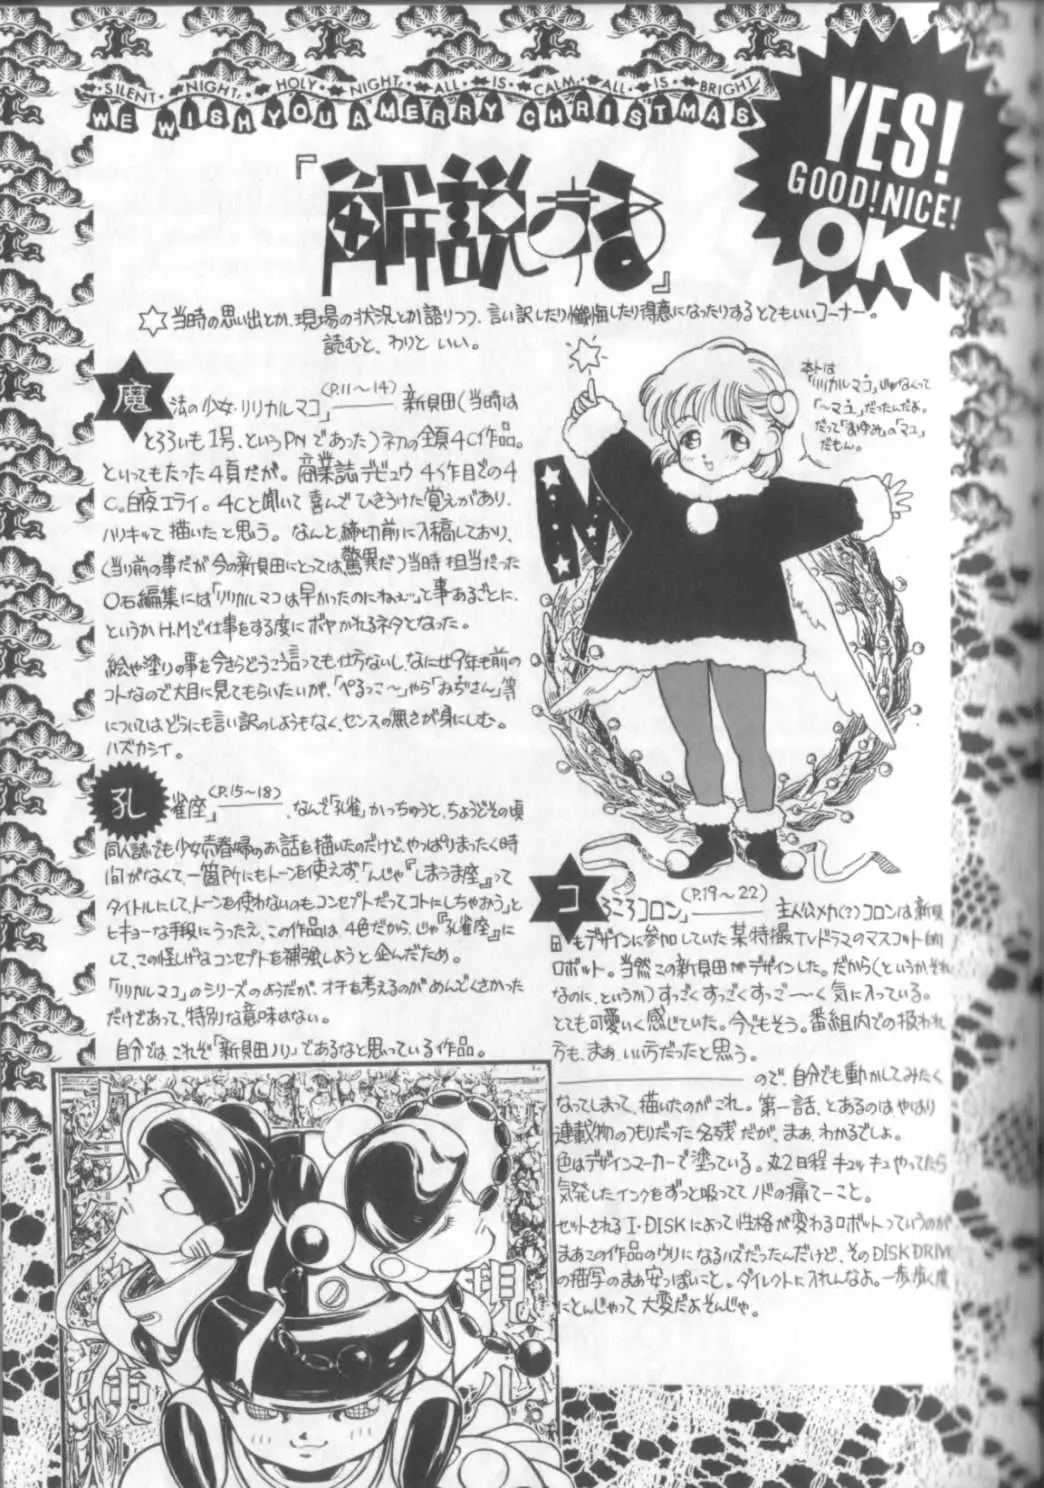 ・SILENT・NIGHT・HOLY・NIGHT・ALL・IS・CALM・ALL・IS・BRIGHT
WE WISH YOU A MERRY CHRISTMAS
YES!
GOOD!NICE!
OK
『解説する』
☆当時の思い出とか、現場の状況とか語りつつ、言い訳したり懺悔したり得意になったりするとてもいいコーナー。
読むと、わりと いい。
魔法の少女・リリカルマコ」(P.11〜14)―― 新貝田(当時は
とろろいも1号、というPNであった)初の全頁4C作品。
といってもたった4頁だが。商業誌デビュウ4作目での4
C。白夜エライ。4Cと聞いて喜んでひきうけた覚えがあり、
ハリキッて描いたと思う。なんと、締切前に入稿しており、
(当り前の事だが今の新貝田にとっては驚異だ)当時担当だった
○石編集には「リリカルマコは早かったのにねぇ…」と事あるごとに、
というかH.Mで仕事をする度にボヤかれるネタとなった。
絵や塗りの事を今さらどうこう言っても仕方ないし、なにせ9年も前の
コトなので大目に見てもらいたいが、「ぺるっこ〜」やら「おぢさん」等
については、どうにも言い訳のしようもなく、センスの無さが身にしむ。
ハズカシイ。
本トは
「リリカルマコ」じゃなくって
「〜マユ」だったんだよ。
だって「まゆみ」の「マユ」
だもん。
M
孔雀座」(P.15〜18)――、なんで「孔雀」かっちゅうと、ちょうどその頃
同人誌でも少女売春婦のお話を描いたのだけど、やっぱりまったく時
間がなくて、一箇所にもトーンを使えず、「んじゃ『しまうま座』って
タイトルにして、トーンを使わないのもコンセプトだってコトにしちゃおう」と
ヒキョーな手段にうったえ、この作品は4色だから、じゃ『孔雀座』に
して、この怪しげなコンセプトを補強しようと企んだため。
「リリカルマコ」のシリーズのようだが、オチを考えるのがめんどくさかった
だけであって、特別な意味はない。
自分では これぞ「新貝田ノリ」であるなと思っている作品。
コろころコロン」(P.19〜22)―― 主人公メカ(?)コロンは新貝
田もデザインに参加していた某特撮TVドラマのマスコット的
ロボット。当然この新貝田がデザインした。だから(というかそれ
なのに、というか)すっごくすっごくすっご〜〜く気に入っている。
とても可愛いく感じていた。今でもそう。番組内での扱われ
方も、まぁ、いい方だったと思う。
―― ので、自分でも動かしてみたく
なってしまって、描いたのがこれ。第一話、とあるのはやはり
連載物のつもりだった名残だが、まぁ、わかるでしょ。
色はデザインマーカーで塗っている。丸2日程キュッキュやってたら
気発したインクをずっと吸っててノドの痛てーこと。
セットされるI・DISKによって性格が変わるロボットっていうのが
まぁこの作品のウリになるハズだったんだけど、そのDISK DRIVE
の描写のまぁ安っぽいこと。ダイレクトに入れんなよ。一歩歩く度
にとんじゃって大変だよそんじゃ。